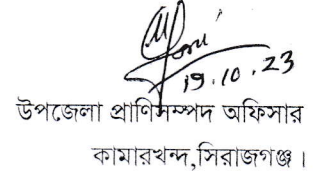 19.10.23
উপজেলা প্রাণিসম্পদ অফিসার
কামারখন্দ,সিরাজগঞ্জ।